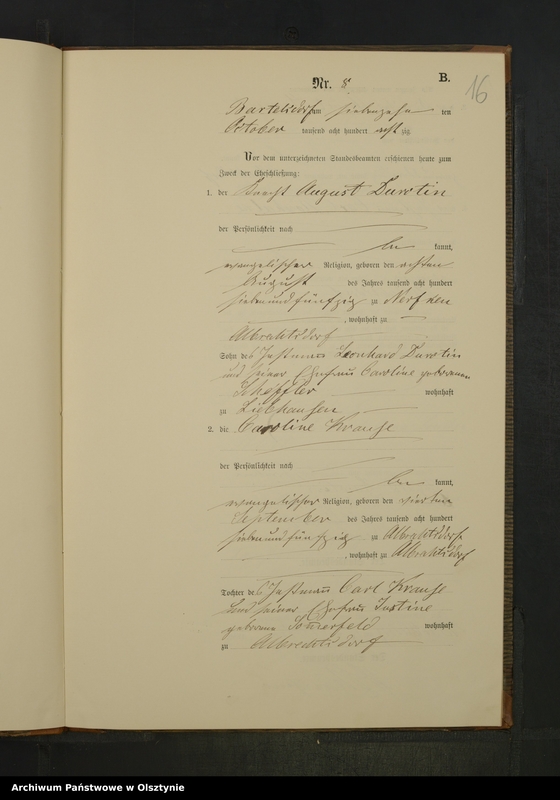 B.
16
Nr. 8
Bartelsdorf am siebenzehn ten
October tausend acht hundert acht zig
Vor dem unterzeichneten Standesbeamten erschienen heute zum
Zweck der Eheschließung:
1. der Knecht August Durotin
der Persönlichkeit nach
be kannt,
evangelischer Religion, geboren den achten
August des Jahres tausend acht hundert
sieben und fünfzig zu
, wohnhaft zu
Albrechtsdorf
Sohn des Instmann Leonhard Durotin
und seiner Ehefrau Caroline geborenen
Scheffler wohnhaft
zu Liebhausen
2. die Caroline Krause
der Persönlichkeit nach
be kannt,
evangelischer Religion, geboren den vierten
September des Jahres tausend acht hundert
sieben und fünfzig zu Albrechtsdorf
, wohnhaft zu Albrechtsdorf
Tochter des Instmann Carl Krause
und seiner Ehefrau Justine
geborene Somerfeld wohnhaft
zu Albrechtsdorf
Archiwum Państwowe w Olsztynie